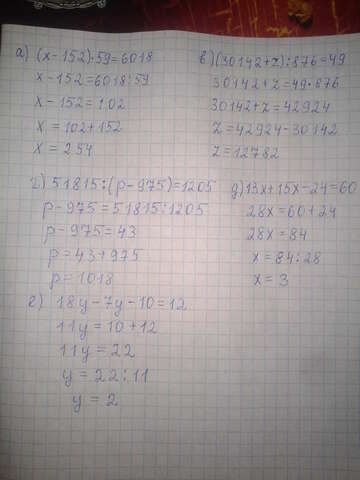 а) (x-152)·59=6018
x-152=6018:59
x-152=102
x=102+152
x=254
в) (30142+z):876=49
30142+z=49·876
30142+z=42924
z=42924-30142
z=12782
г) 51815:(p-975)=1205
p-975=51815:1205
p-975=43
p=43+975
p=1018
д) 13x+15x-24=60
28x=60+24
28x=84
x=84:28
x=3
г) 18y-7y-10=12
11y=10+12
11y=22
y=22:11
y=2